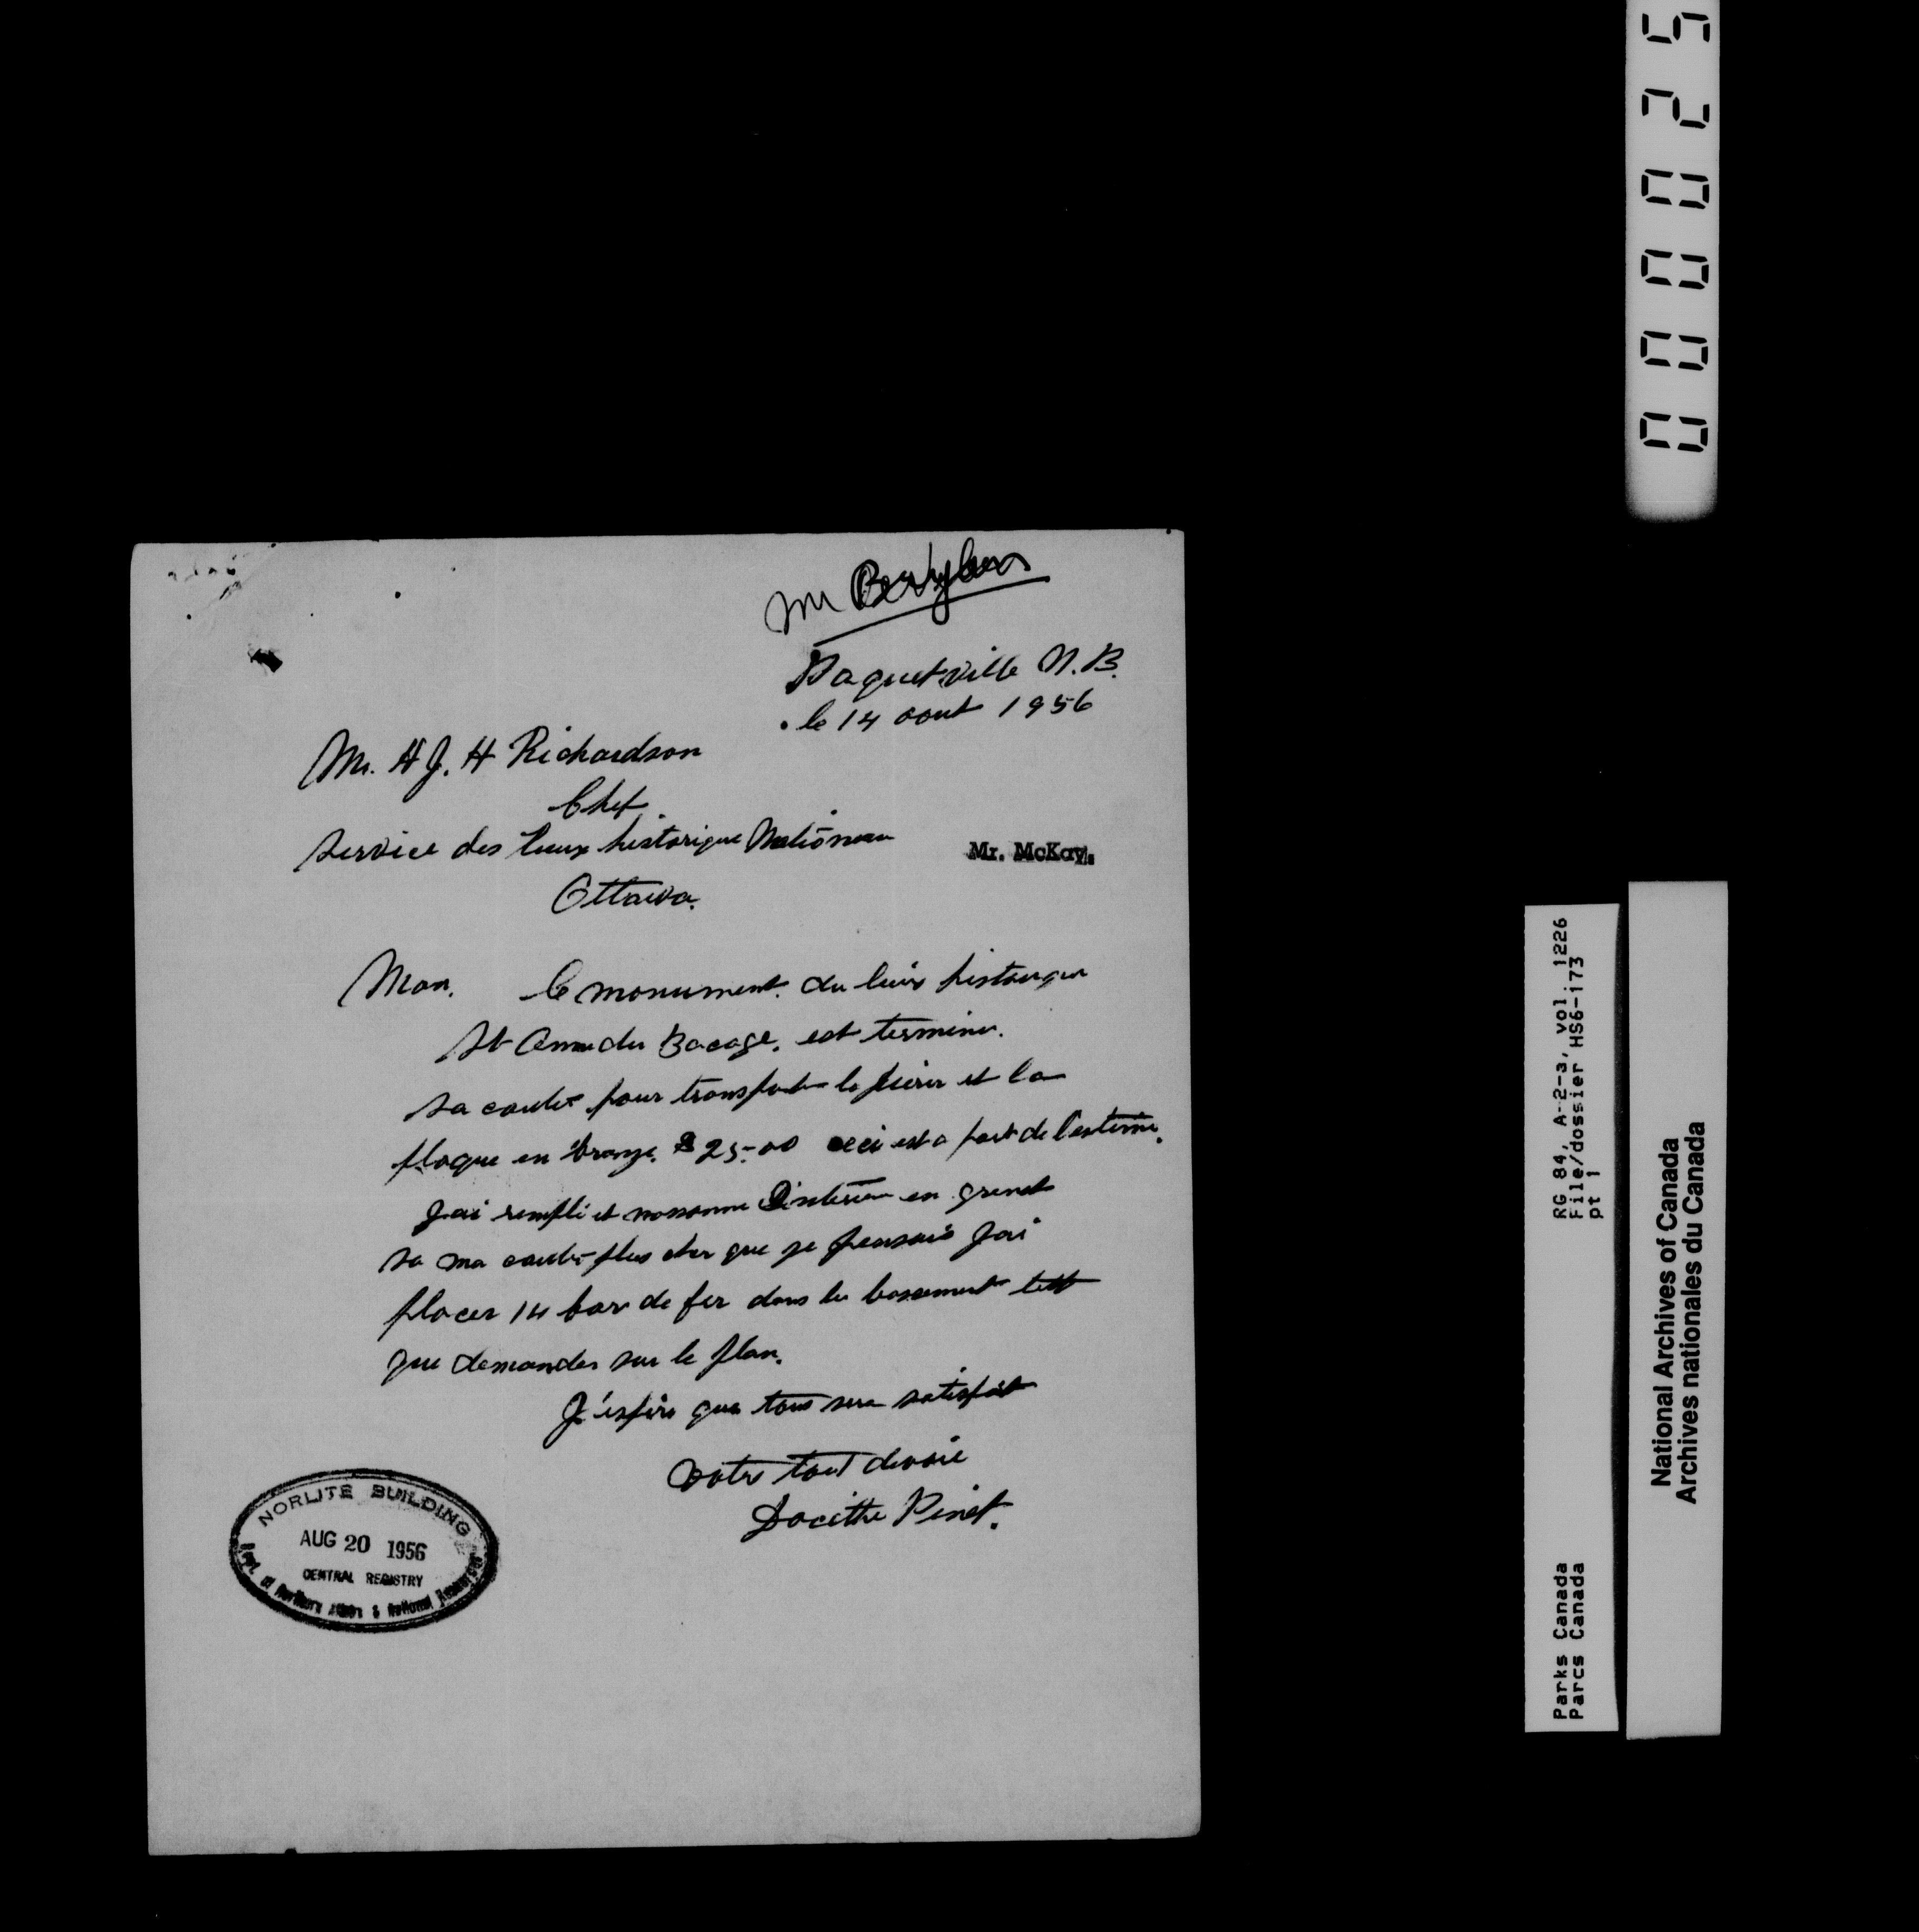 Mr
Paquetville N.B.
. le 14 aout 1956
Mr. H J. H Richardson
Chef.
Service des lieux historique Nationau
Mr. McKay.
Ottawa.
Mon. le monument. du lieux historique
St Anne du Bocage. est terminer.
Sa couter pour transporter la pierer et la
plaque en bronze. $25.00 ceci est a part de l'estime.
J'ai rempli et massonne l'interieur en
sa ma couter plus cher que je pensais J'ai
placer 14 bar de fer dans le bassement tell
que demander sur le plan.
J'éspère que tous sera satisfait
Votre tout devoué
Docithe Pinet.
NORLITE BUILDING
AUG 20 1956
CENTRAL REGISTRY
Dept. of Northern Affairs & National Resources
000025
RG 84, A-2-a, vol. 1226
File/dossier HS6-173
pt 1
Parks Canada
Parcs Canada
National Archives of Canada
Archives nationales du Canada